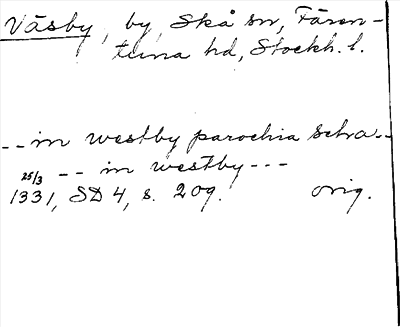 Väsby, by, Skå sn, Fären-
tuna hd, Stockh. l.
-- in westby parochia scha--
25/3 -- in westby ---
1331, SD 4, s. 209. orig.